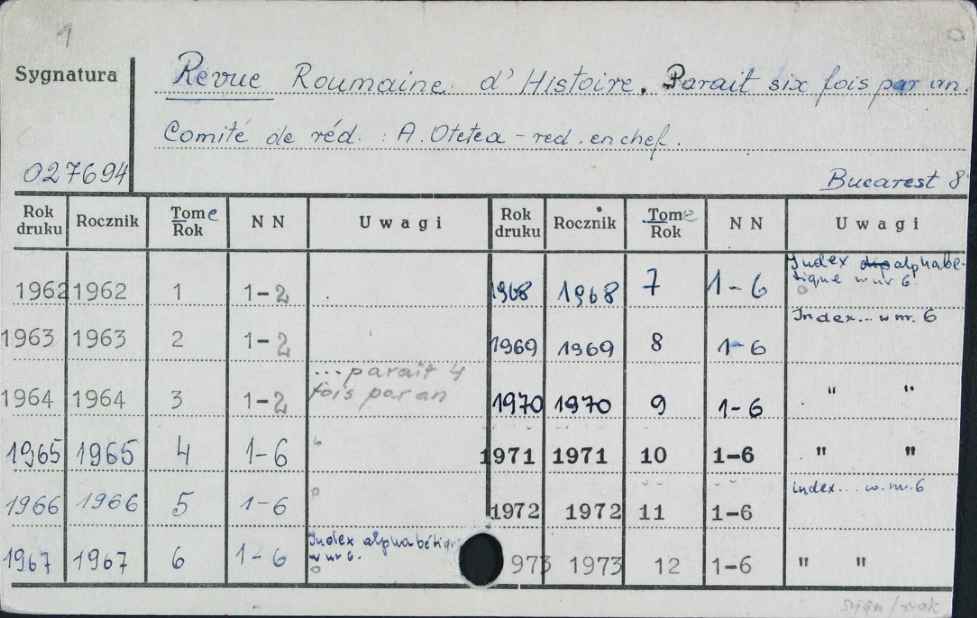 1
Sygnatura
Revue Roumaine d'Histoire. Parait six fois par an.
Comité de réd. : A. Otetea - red. en chef.
027694
Bucarest 8
Rok druku Rocznik Tome Rok N N Uwagi Rok druku Rocznik Tome Rok N N Uwagi
1962 1962 1 1-2 1968 1968 7 1-6 Index alphabé-
tique w nr 6
1963 1963 2 1-2 1969 1969 8 1-6 Index... w nr. 6
1964 1964 3 1-2 ... parait 4
fois par an 1970 1970 9 1-6 " "
1965 1965 4 1-6 1971 1971 10 1-6 " "
1966 1966 5 1-6 1972 1972 11 1-6 index... w. nr. 6
1967 1967 6 1-6 Index alphabétiq
w nr 6. 973 1973 12 1-6 " "